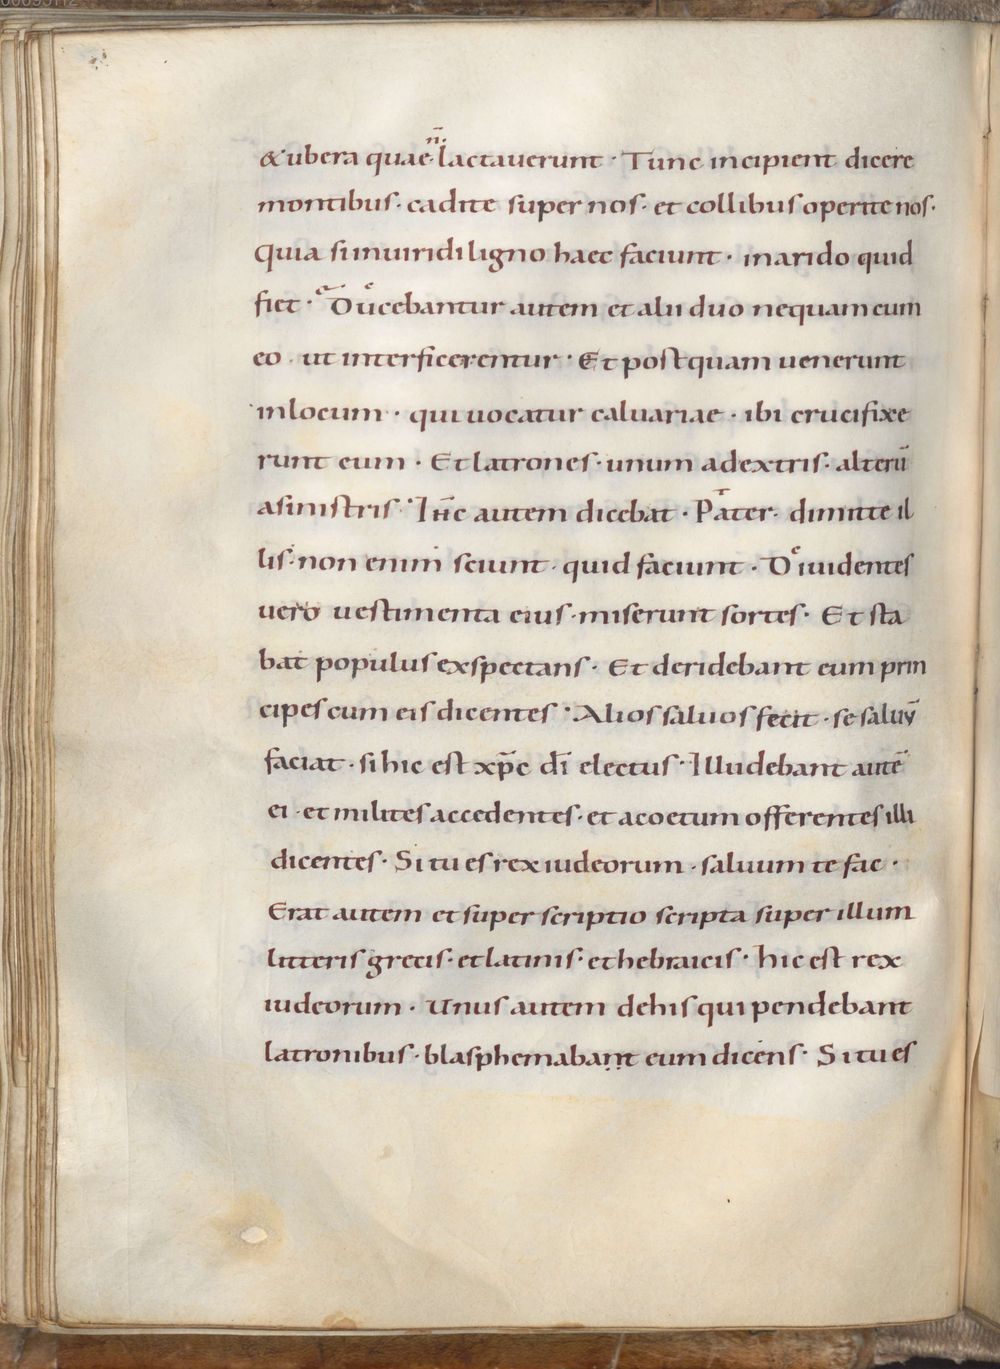 & ubera quae n̄ lactauerunt · Tunc incipient dicere
montibus · cadite super nos · et collibus operite nos ·
Quia si inuiridi ligno haec faciunt · inarido quid
fiet · Ducebantur autem et alii duo nequam cum
eo · ut interficerentur · Et postquam uenerunt
inlocum · qui uocatur caluariae · ibi crucifixe
runt eum · Et latrones · unum adextris · alterū
asinistris · Ih̄c autem dicebat · Pater · dimitte il
lis · non enim sciunt · quid faciunt · Diuidentes
uero uestimenta eius · miserunt sortes · Et sta
bat populus exspectans · Et deridebant eum prin
cipes cum eis dicentes · Alios saluos fecit · se saluū
faciat · si hic est xp̄c dī electus · Illudebant autē
ei · et milites accedentes · et acoetum offerentes illi
dicentes · Si tu es rex iudeorum · saluum te fac ·
Erat autem et super scriptio scripta super illum
litteris grecis · et latinis · et hebraicis · hic est rex
iudeorum · Unus autem dehis qui pendebant
latronibus · blasphemabant eum dicens · Si tu es